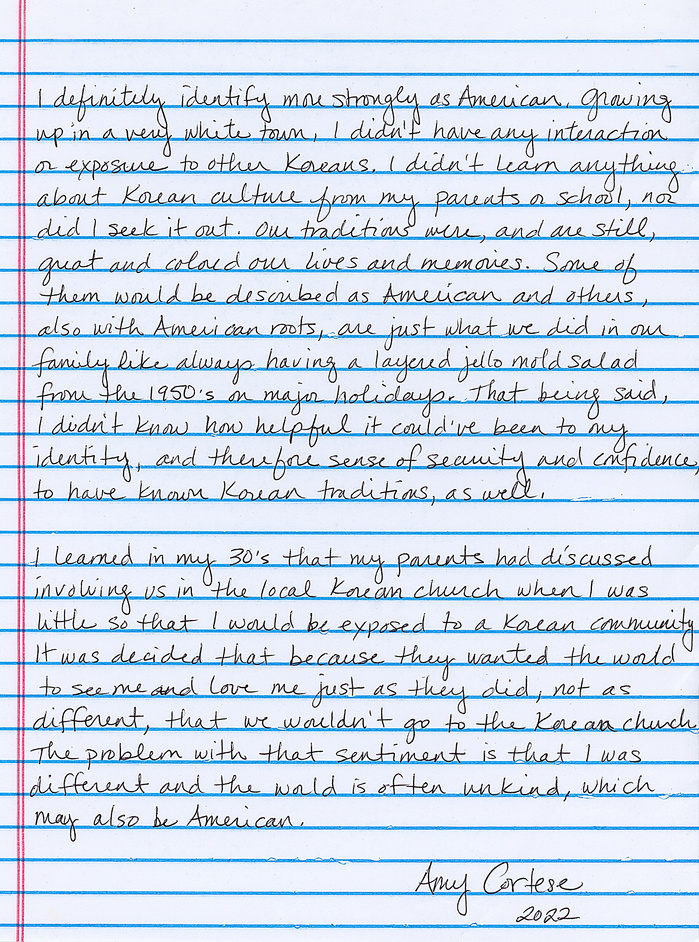 I definitely identify more strongly as American. Growing
up in a very white town, I didn't have any interaction
or exposure to other Koreans. I didn't learn anything
about Korean culture from my parents or school, nor
did I seek it out. Our traditions were, and are still,
great and colored our lives and memories. Some of
them would be described as American and others,
also with American roots, are just what we did in our
family like always having a layered jello mold salad
from the 1950's on major holidays. That being said,
I didn't know how helpful it could've been to my
identity, and therefore sense of security and confidence,
to have known Korean traditions, as well.

I learned in my 30's that my parents had discussed
involving us in the local Korean church when I was
little so that I would be exposed to a Korean community
It was decided that because they wanted the world
to see me and love me just as they did, not as
different, that we wouldn't go to the Korean church
The problem with that sentiment is that I was
different and the world is often unkind, which
may also be American.

Amy Cortese
2022